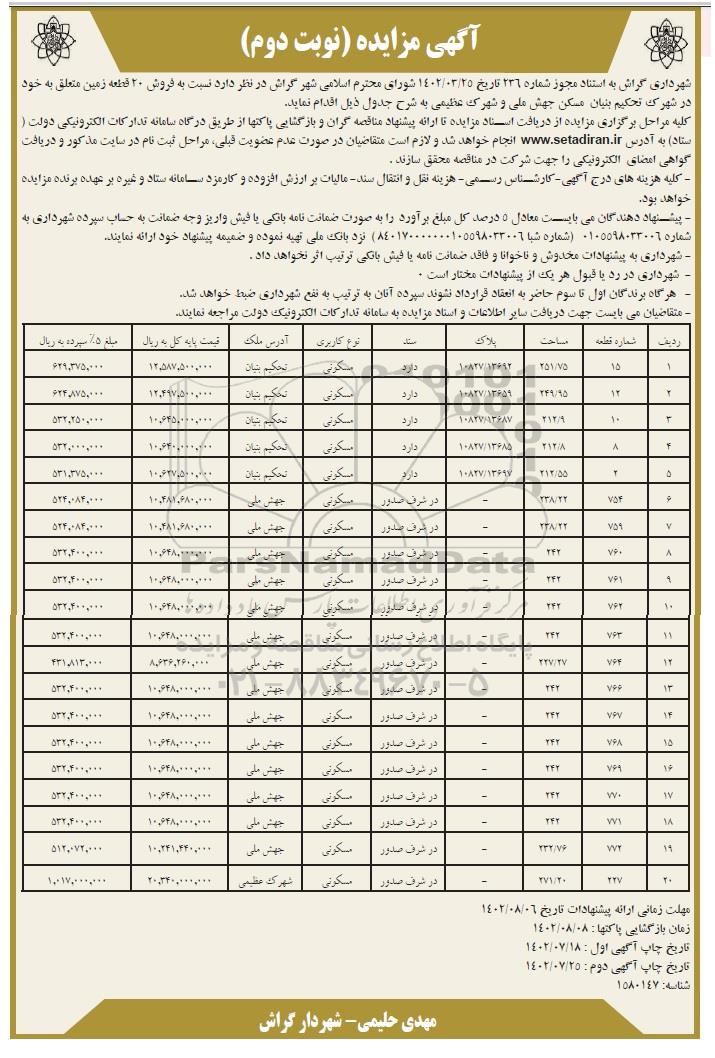 آگهی مزایده (نوبت دوم)
شهرداری گراش به استناد مجوز شماره ۲۳۶ تاریخ ۱۴۰۲/۰۳/۲۵ شورای محترم اسلامی شهر گراش در نظر دارد نسبت به فروش ۲۰ قطعه زمین متعلق به خود
در شهرک تحکیم بنیان مسکن جهش ملی و شهرک عظیمی به شرح جدول ذیل اقدام نماید.
کلیه مراحل برگزاری مزایده از دریافت اسناد مزایده تا ارائه پیشنهاد مناقصه گران و بازگشایی پاکتها از طریق درگاه سامانه تدارکات الکترونیکی دولت (
ستاد) به آدرس www.setadiran.ir انجام خواهد شد و لازم است متقاضیان در صورت عدم عضویت قبلی، مراحل ثبت نام در سایت مذکور و دریافت
گواهی امضای الکترونیکی را جهت شرکت در مناقصه محقق سازند .
- کلیه هزینه های درج آگهی-کارشناس رسمی- هزینه نقل و انتقال سند- مالیات بر ارزش افزوده و کارمزد سامانه ستاد و غیره بر عهده برنده مزایده
خواهد بود.
- پیشنهاد دهندگان می بایست معادل ۵ درصد کل مبلغ برآورد را به صورت ضمانت نامه بانکی یا فیش واریز وجه ضمانت به حساب سپرده شهرداری به
شماره ۰۱۰۵۵۹۸۰۳۳۰۰۶ (شماره شبا ۸۴۰۱۷۰۰۰۰۰۰۰۱۰۵۵۹۸۰۳۳۰۰۶) نزد بانک ملی تهیه نموده و ضمیمه پیشنهاد خود ارائه نمایند.
- شهرداری به پیشنهادات مخدوش و ناخوانا و فاقد ضمانت نامه یا فیش بانکی ترتیب اثر نخواهد داد .
- شهرداری در رد یا قبول هر یک از پیشنهادات مختار است ۰
- هرگاه برندگان اول تا سوم حاضر به انعقاد قرارداد نشوند سپرده آنان به ترتیب به نفع شهرداری ضبط خواهد شد.
- متقاضیان می بایست جهت دریافت سایر اطلاعات و اسناد مزایده به سامانه تدارکات الکترونیک دولت مراجعه نمایند.
ردیف شماره قطعه مساحت پلاک سند نوع کاربری آدرس ملک قیمت پایه کل به ریال مبلغ ۵٪ سپرده به ریال
۱ ۱۵ ۲۵۱/۷۵ ۱۰۸۲۷/۱۳۶۹۲ دارد مسکونی تحکیم بنیان ۱۲,۵۸۷,۵۰۰,۰۰۰ ۶۲۹,۳۷۵,۰۰۰
۲ ۱۲ ۲۴۹/۹۵ ۱۰۸۲۷/۱۳۶۵۹ دارد مسکونی تحکیم بنیان ۱۲,۴۹۷,۵۰۰,۰۰۰ ۶۲۴,۸۷۵,۰۰۰
۳ ۱۰ ۲۱۲/۹ ۱۰۸۲۷/۱۳۶۸۷ دارد مسکونی تحکیم بنیان ۱۰,۶۴۵,۰۰۰,۰۰۰ ۵۳۲,۲۵۰,۰۰۰
۴ ۸ ۲۱۲/۸ ۱۰۸۲۷/۱۳۶۸۵ دارد مسکونی تحکیم بنیان ۱۰,۶۴۰,۰۰۰,۰۰۰ ۵۳۲,۰۰۰,۰۰۰
۵ ۲ ۲۱۲/۵۵ ۱۰۸۲۷/۱۳۶۹۷ دارد مسکونی تحکیم بنیان ۱۰,۶۲۷,۵۰۰,۰۰۰ ۵۳۱,۳۷۵,۰۰۰
۶ ۷۵۴ ۲۳۸/۲۲ - در شرف صدور مسکونی جهش ملی ۱۰,۴۸۱,۶۸۰,۰۰۰ ۵۲۴,۰۸۴,۰۰۰
۷ ۷۵۹ ۲۳۸/۲۲ - در شرف صدور مسکونی جهش ملی ۱۰,۴۸۱,۶۸۰,۰۰۰ ۵۲۴,۰۸۴,۰۰۰
۸ ۷۶۰ ۲۴۲ - در شرف صدور مسکونی جهش ملی ۱۰,۶۴۸,۰۰۰,۰۰۰ ۵۳۲,۴۰۰,۰۰۰
۹ ۷۶۱ ۲۴۲ - در شرف صدور مسکونی جهش ملی ۱۰,۶۴۸,۰۰۰,۰۰۰ ۵۳۲,۴۰۰,۰۰۰
۱۰ ۷۶۲ ۲۴۲ - در شرف صدور مسکونی جهش ملی ۱۰,۶۴۸,۰۰۰,۰۰۰ ۵۳۲,۴۰۰,۰۰۰
۱۱ ۷۶۳ ۲۴۲ - در شرف صدور مسکونی جهش ملی ۱۰,۶۴۸,۰۰۰,۰۰۰ ۵۳۲,۴۰۰,۰۰۰
۱۲ ۷۶۴ ۲۲۷/۲۷ - در شرف صدور مسکونی جهش ملی ۸,۶۳۶,۲۶۰,۰۰۰ ۴۳۱,۸۱۳,۰۰۰
۱۳ ۷۶۶ ۲۴۲ - در شرف صدور مسکونی جهش ملی ۱۰,۶۴۸,۰۰۰,۰۰۰ ۵۳۲,۴۰۰,۰۰۰
۱۴ ۷۶۷ ۲۴۲ - در شرف صدور مسکونی جهش ملی ۱۰,۶۴۸,۰۰۰,۰۰۰ ۵۳۲,۴۰۰,۰۰۰
۱۵ ۷۶۸ ۲۴۲ - در شرف صدور مسکونی جهش ملی ۱۰,۶۴۸,۰۰۰,۰۰۰ ۵۳۲,۴۰۰,۰۰۰
۱۶ ۷۶۹ ۲۴۲ - در شرف صدور مسکونی جهش ملی ۱۰,۶۴۸,۰۰۰,۰۰۰ ۵۳۲,۴۰۰,۰۰۰
۱۷ ۷۷۰ ۲۴۲ - در شرف صدور مسکونی جهش ملی ۱۰,۶۴۸,۰۰۰,۰۰۰ ۵۳۲,۴۰۰,۰۰۰
۱۸ ۷۷۱ ۲۴۲ - در شرف صدور مسکونی جهش ملی ۱۰,۶۴۸,۰۰۰,۰۰۰ ۵۳۲,۴۰۰,۰۰۰
۱۹ ۷۷۲ ۲۳۲/۷۶ - در شرف صدور مسکونی جهش ملی ۱۰,۲۴۱,۴۴۰,۰۰۰ ۵۱۲,۰۷۲,۰۰۰
۲۰ ۲۲۷ ۲۷۱/۲۰ - در شرف صدور مسکونی شهرک عظیمی ۲۰,۳۴۰,۰۰۰,۰۰۰ ۱,۰۱۷,۰۰۰,۰۰۰
ParsNamadData
مرکز فرآوری اطلاعات پارس نماد داده ها
پایگاه اطلاع رسانی مناقصه و مزایده
۰۲۱-۸۸۳۴۹۶۷۰-۵
مهلت زمانی ارائه پیشنهادات تاریخ ۱۴۰۲/۰۸/۰۶
زمان بازگشایی پاکتها : ۱۴۰۲/۰۸/۰۸
تاریخ چاپ آگهی اول : ۱۴۰۲/۰۷/۱۸
تاریخ چاپ آگهی دوم : ۱۴۰۲/۰۷/۲۵
شناسه: ۱۵۸۰۱۴۷
مهدی حلیمی- شهردار گراش